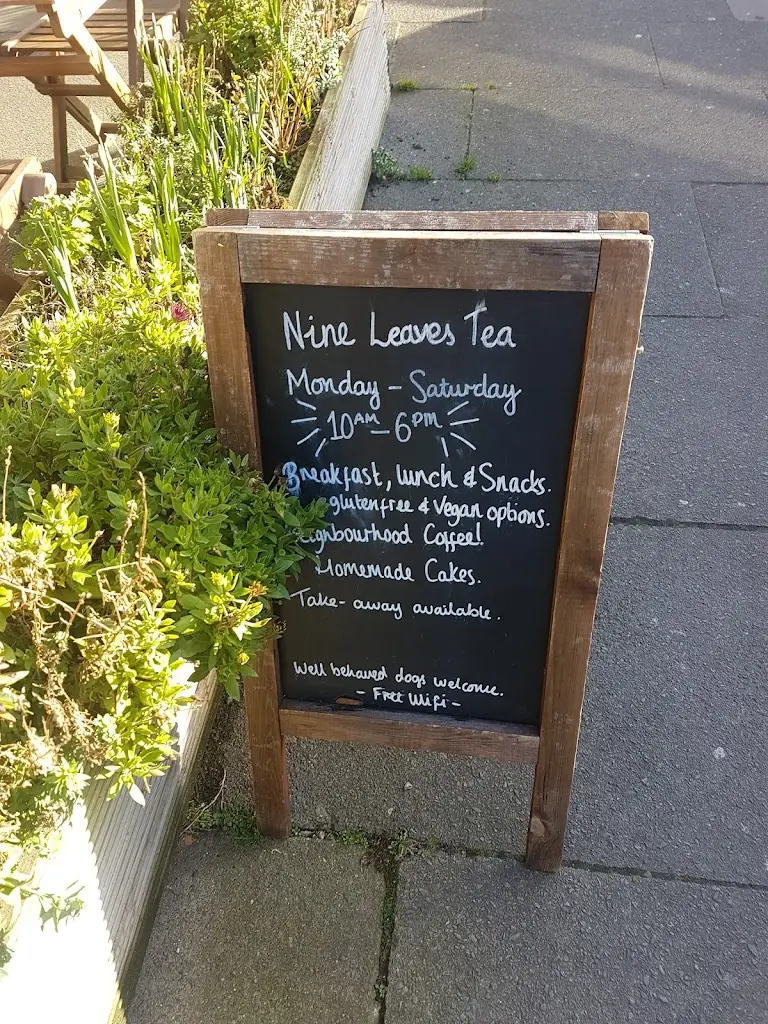 Nine Leaves Tea
Monday - Saturday
10AM - 6PM
Breakfast, lunch & Snacks.
glutenfree & Vegan options.
Neighbourhood Coffee!
Homemade Cakes.
Take-away available.
Well behaved dogs welcome.
- Free Wifi -